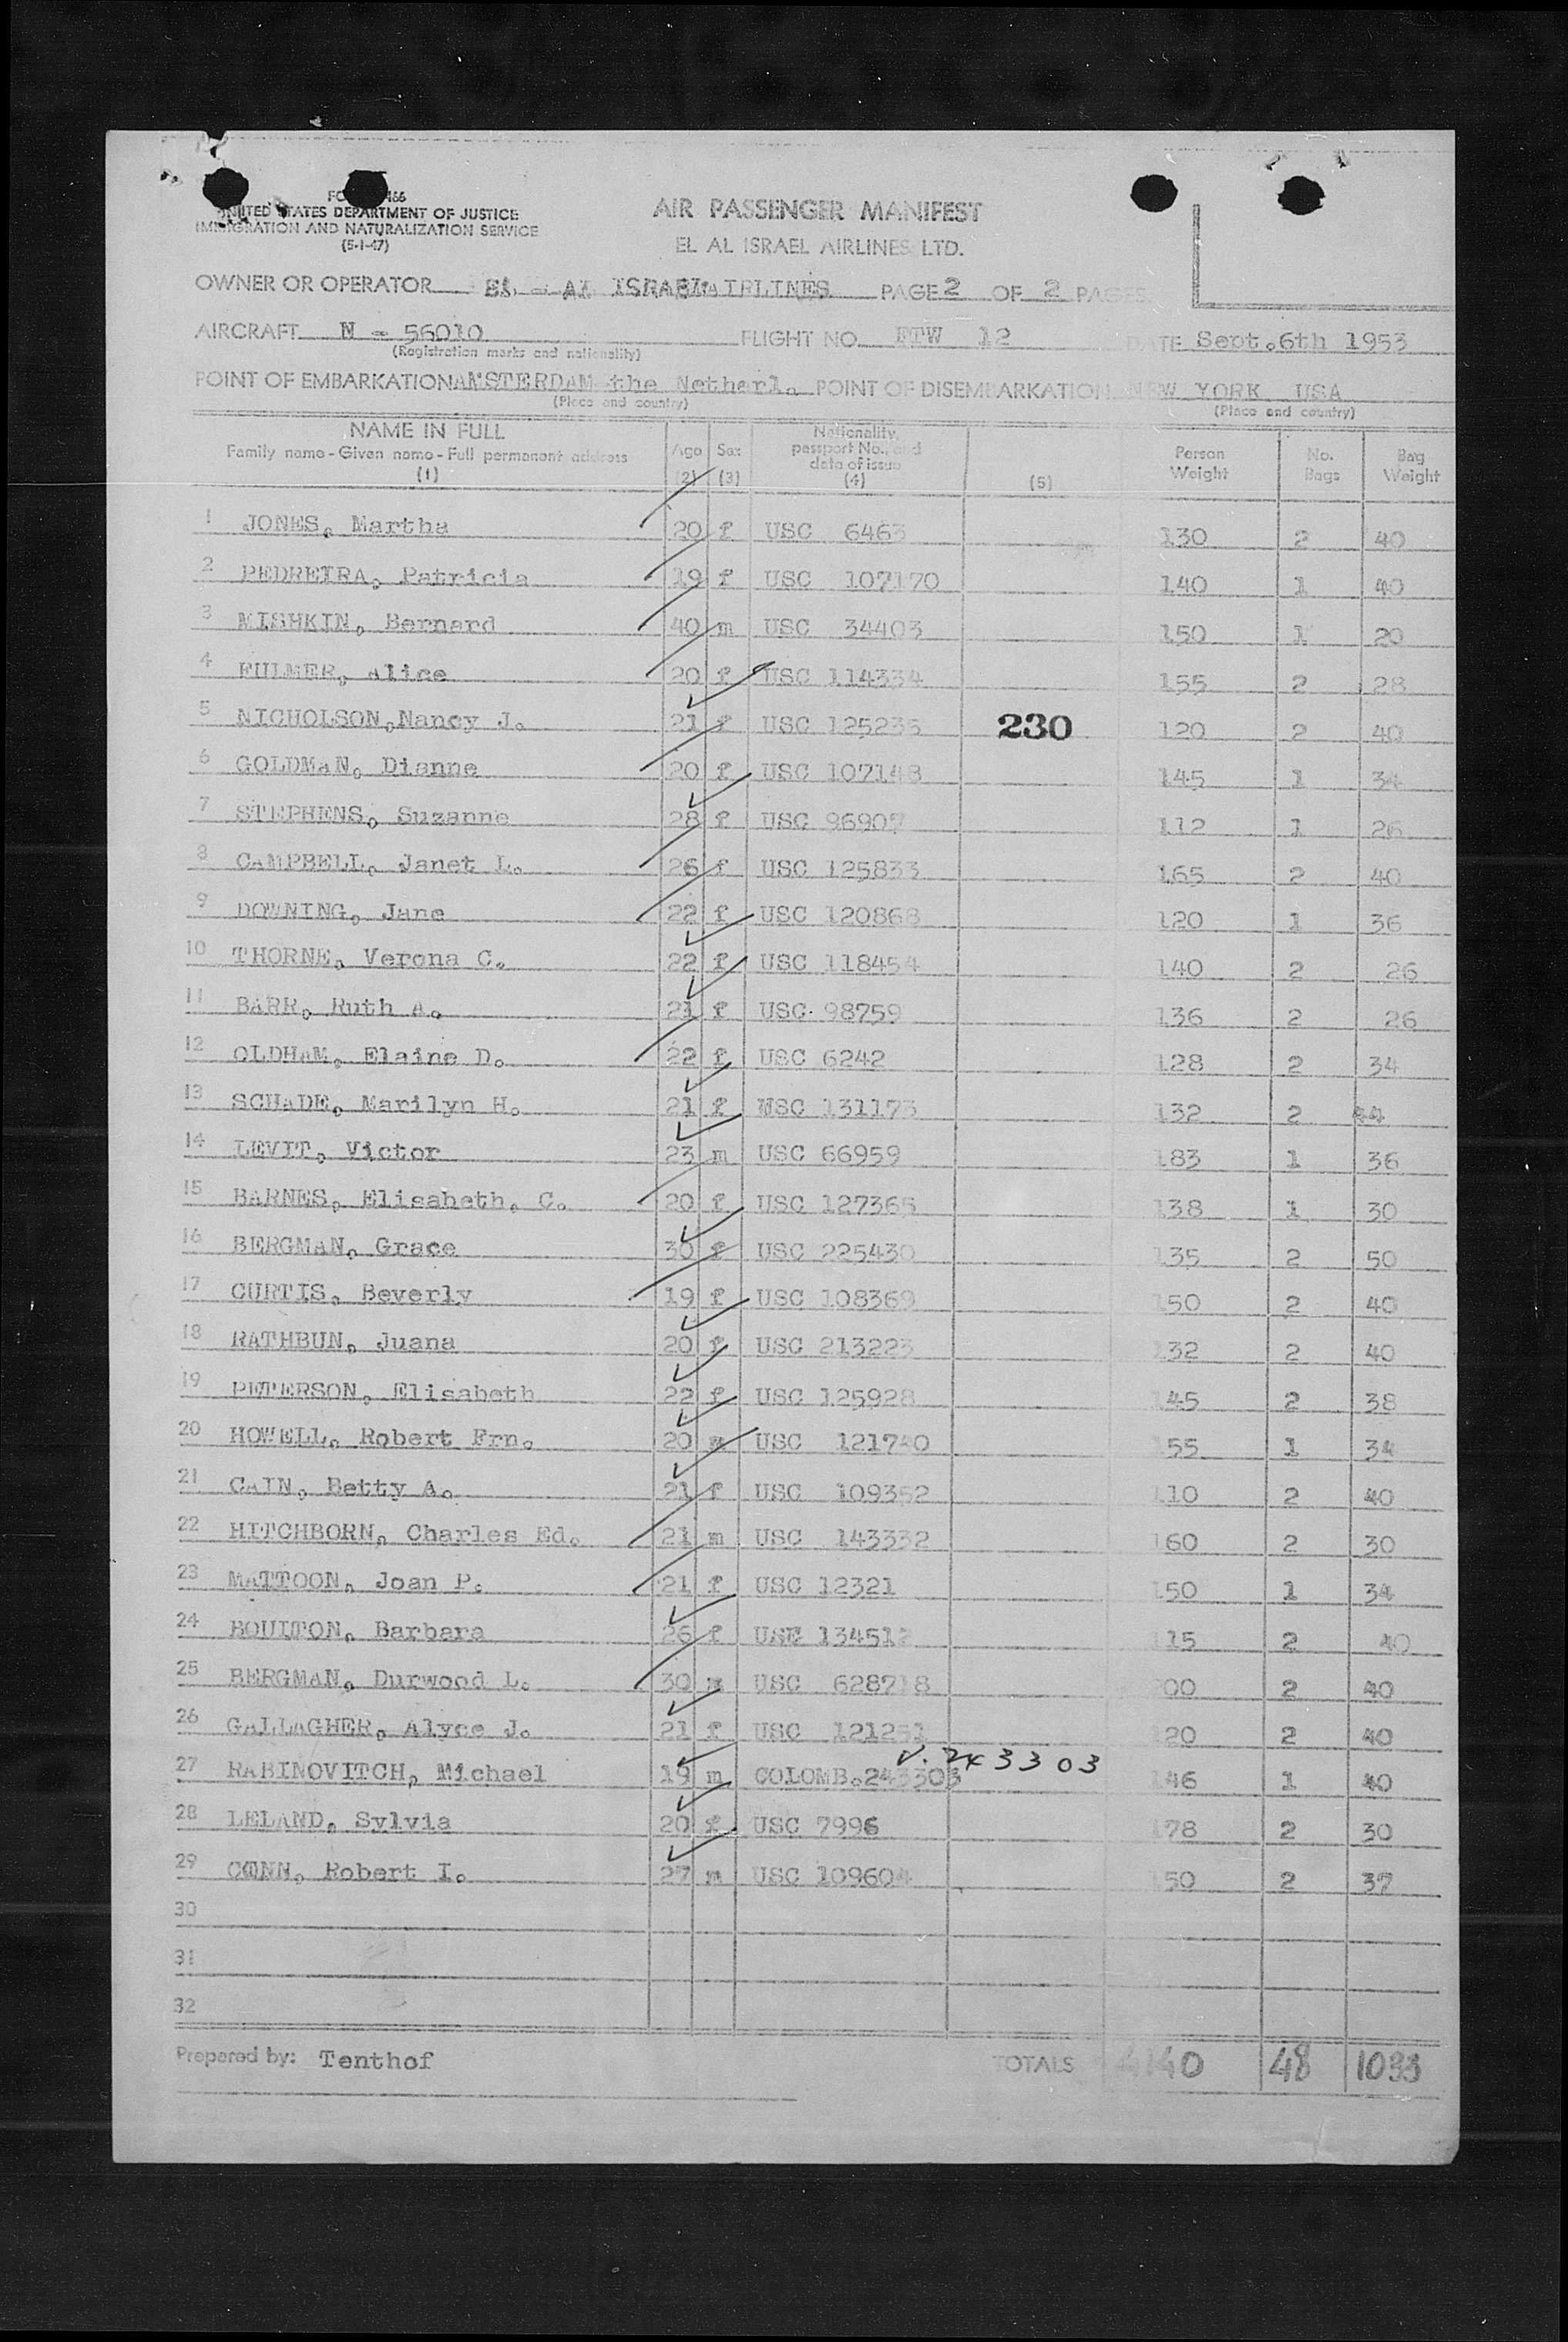 FO 466
UNITED STATES DEPARTMENT OF JUSTICE
IMMIGRATION AND NATURALIZATION SERVICE
(5-1-47)
AIR PASSENGER MANIFEST
EL AL ISRAEL AIRLINES LTD.
OWNER OR OPERATOR EL - AL ISRAEL AIRLINES PAGE 2 OF 2 PAGES
AIRCRAFT N - 56010 FLIGHT NO. FTW 12 DATE Sept.6th 1953
(Registration marks and nationality)
POINT OF EMBARKATION AMSTERDAM the Netherl. POINT OF DISEMBARKATION NEW YORK USA
(Place and country) (Place and country)
NAME IN FULL Age Sex Nationality, passport No., and date of issue Person Weight No. Bags Bag Weight
Family name - Given name - Full permanent address
(1) (2) (3) (4) (5)
1 JONES, Martha 20 f USC 6463 130 2 40
2 PEDREIRA, Patricia 19 f USC 107170 140 1 40
3 MISHKIN, Bernard 40 m USC 34403 150 1 20
4 FULMER, Alice 20 f USC 114334 155 2 28
5 NICHOLSON,Nancy J. 21 f USC 125235 230 120 2 40
6 GOLDMAN, Dianne 20 f USC 107148 145 1 34
7 STEPHENS, Suzanne 28 f USC 96907 112 1 26
8 CAMPBELL, Janet L. 26 f USC 125833 165 2 40
9 DOWNING, Jane 22 f USC 120868 120 1 36
10 THORNE, Verona C. 22 f USC 118454 140 2 26
11 BARR, Ruth A. 21 f USC 98759 136 2 26
12 OLDHAM, Elaine D. 22 f USC 6242 128 2 34
13 SCHADE, Marilyn H. 21 f USC 131173 132 2 44
14 LEVIT, Victor 23 m USC 66959 183 1 36
15 BARNES, Elisabeth, C. 20 f USC 127365 138 1 30
16 BERGMAN, Grace 30 f USC 225430 135 2 50
17 CURTIS, Beverly 19 f USC 108369 150 2 40
18 RATHBUN, Juana 20 f USC 213223 132 2 40
19 PETERSON, Elisabeth 22 f USC 125928 145 2 38
20 HOWELL, Robert Frn. 20 m USC 121740 155 1 34
21 CAIN, Betty A. 21 f USC 109352 110 2 40
22 HITCHBORN, Charles Ed. 21 m USC 143332 160 2 30
23 MATTOON, Joan P. 21 f USC 12321 150 1 34
24 BOULTON, Barbara 26 f USC 134512 115 2 40
25 BERGMAN, Durwood L. 30 m USC 628718 200 2 40
26 GALLAGHER, Alyce J. 21 f USC 121251 120 2 40
V. 243303
27 RABINOVITCH, Michael 19 m COLOMB.243303 146 1 40
28 LELAND, Sylvia 20 f USC 7996 178 2 30
29 CONN, Robert I. 27 m USC 109604 150 2 37
30
31
32
Prepared by: Tenthof TOTALS 4140 48 1033